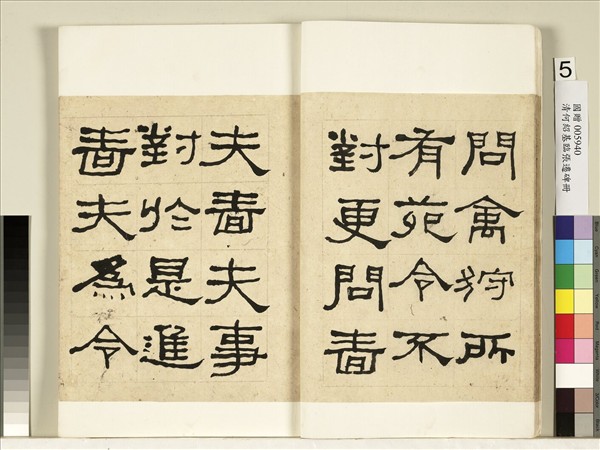 問禽狩所
有苑令不
對更問嗇
夫嗇夫事
對於是進
嗇夫為令
5
國贈 005940
清何紹基臨張遷碑冊